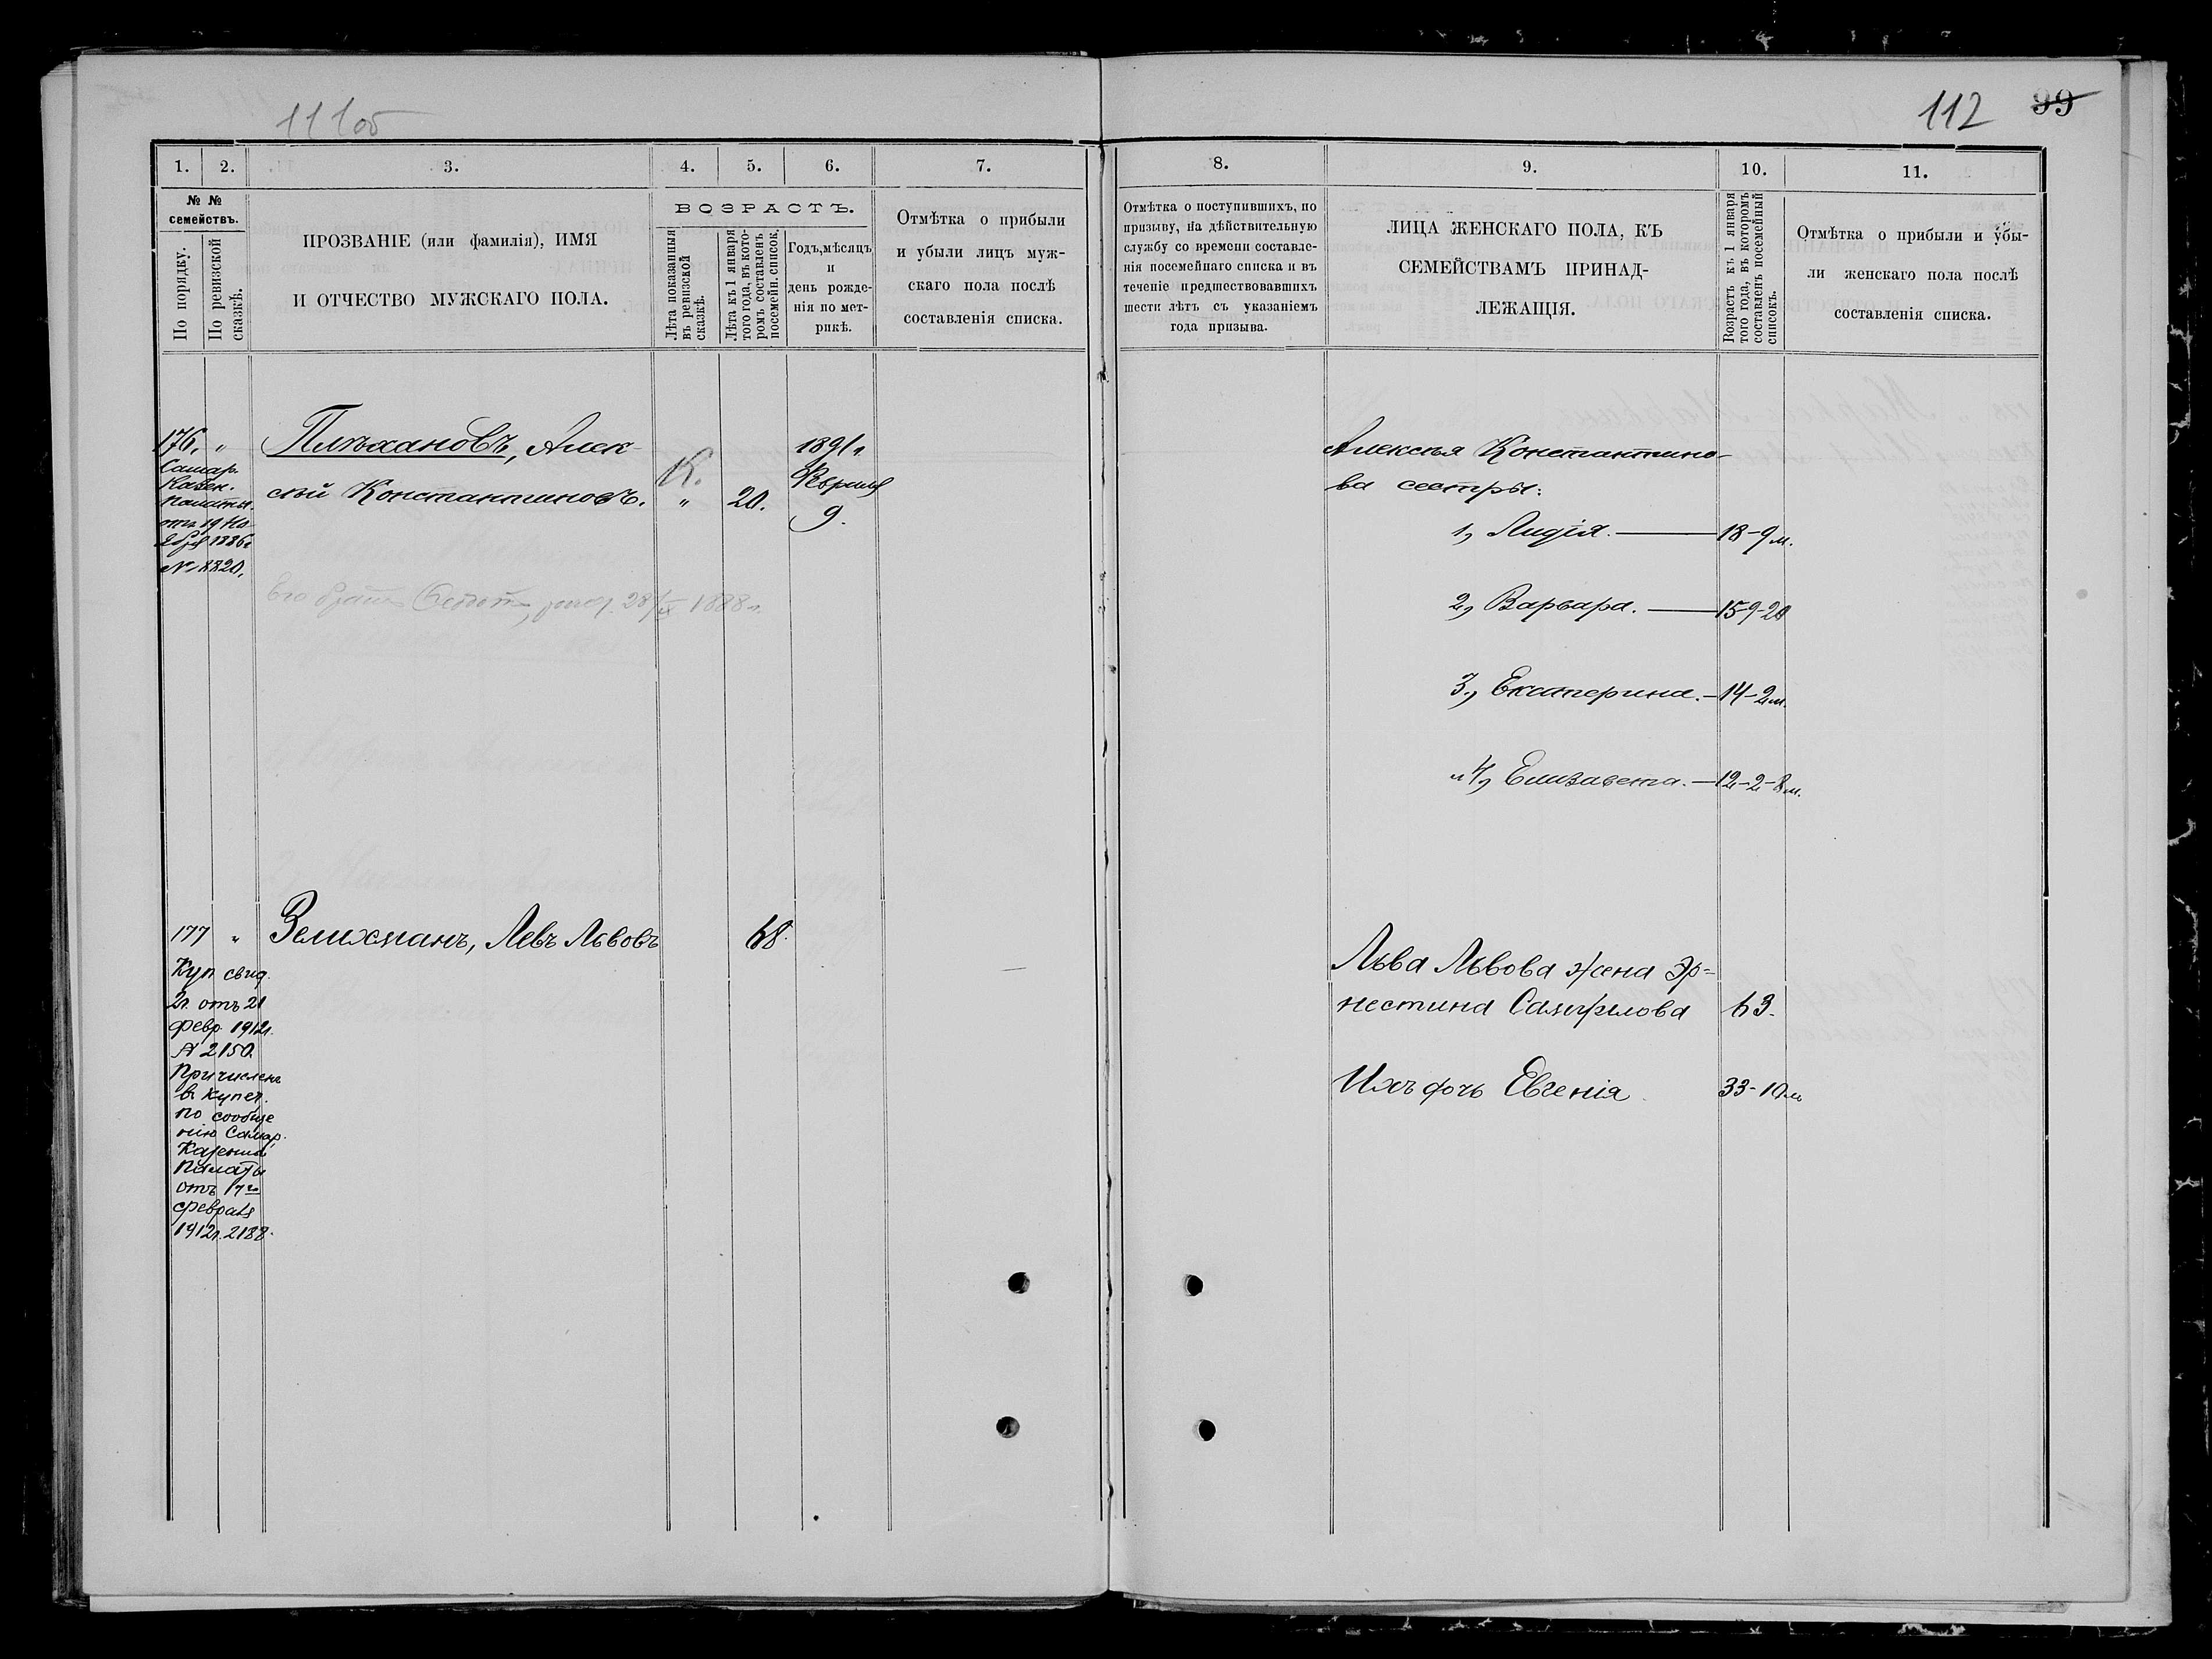 111об
112
99
1.
2.
3.
4.
5.
6.
7.
№ №
семействъ.
По порядку.
По ревизской
сказкѣ.
ПРОЗВАНІЕ (или фамилія), ИМЯ
И ОТЧЕСТВО МУЖСКАГО ПОЛА.
ВОЗРАСТЪ.
Лѣта показанныя
въ ревизской
сказкѣ.
Лѣта къ 1 января
того года, въ кото-
ромъ составленъ
посемейн. список.
Годъ, мѣсяцъ
и
день рожде-
нія по мет-
рикѣ.
Отмѣтка о прибыли
и убыли лицъ муж-
скаго пола послѣ
составленія списка.
8.
9.
10.
11.
Отмѣтка о поступившихъ, по
призыву, на дѣйствительную
службу со времени составле-
нія посемейнаго списка и въ
теченіе предшествовавшихъ
шести лѣтъ съ указаніемъ
года призыва.
ЛИЦА ЖЕНСКАГО ПОЛА, КЪ
СЕМЕЙСТВАМЪ ПРИНАД-
ЛЕЖАЩІЯ.
Возрастъ къ 1 января
того года, въ которомъ
составленъ посемейный
списокъ.
Отмѣтка о прибыли и убы-
ли женскаго пола послѣ
составленія списка.
176. "
Самар.
Казен.
Палаты
отъ 19 Но-
ября 1886г
№ 8820.
Плѣхановъ, Алек-
сѣй Константиновъ.
К.
"
20.
1891г.
Апрѣля
9.
Его братъ рожд. 28/IX 1888г.
Алексѣя Константино-
ва сестры:
1, Лидія. — 18-9 м.
2, Варвара. — 15-9-20
3, Екатерина. — 14-2 м.
и 4, Елизавета. — 12-2-8 м.
177 "
Куп свид.
2г. отъ 21
февр. 1912г.
№ 2150.
Причисленъ
въ купеч.
по сообще
нію Самар.
Казенной
Палаты
отъ 17го
февраля
1912г. 2188.
Зелихманъ, Левъ Львовъ
68.
Льва Львова жена Эр=
нестина Самуилова 63.
Ихъ дочь Евгенія 33-10 м